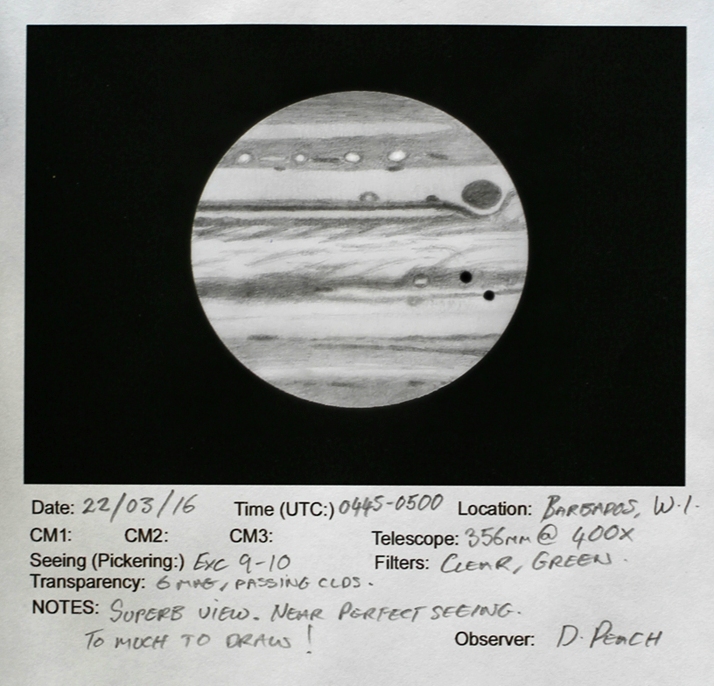 Date: 22/03/16 Time (UTC:) 0445-0500 Location: BARBADOS, W.I.
CM1: CM2: CM3: Telescope: 356mm @ 400X
Seeing (Pickering:) EXC 9-10 Filters: CLEAR, GREEN.
Transparency: 6 MAG, PASSING CLDS.
NOTES: SUPERB VIEW. NEAR PERFECT SEEING.
TO MUCH TO DRAW!
Observer: D. PEACH